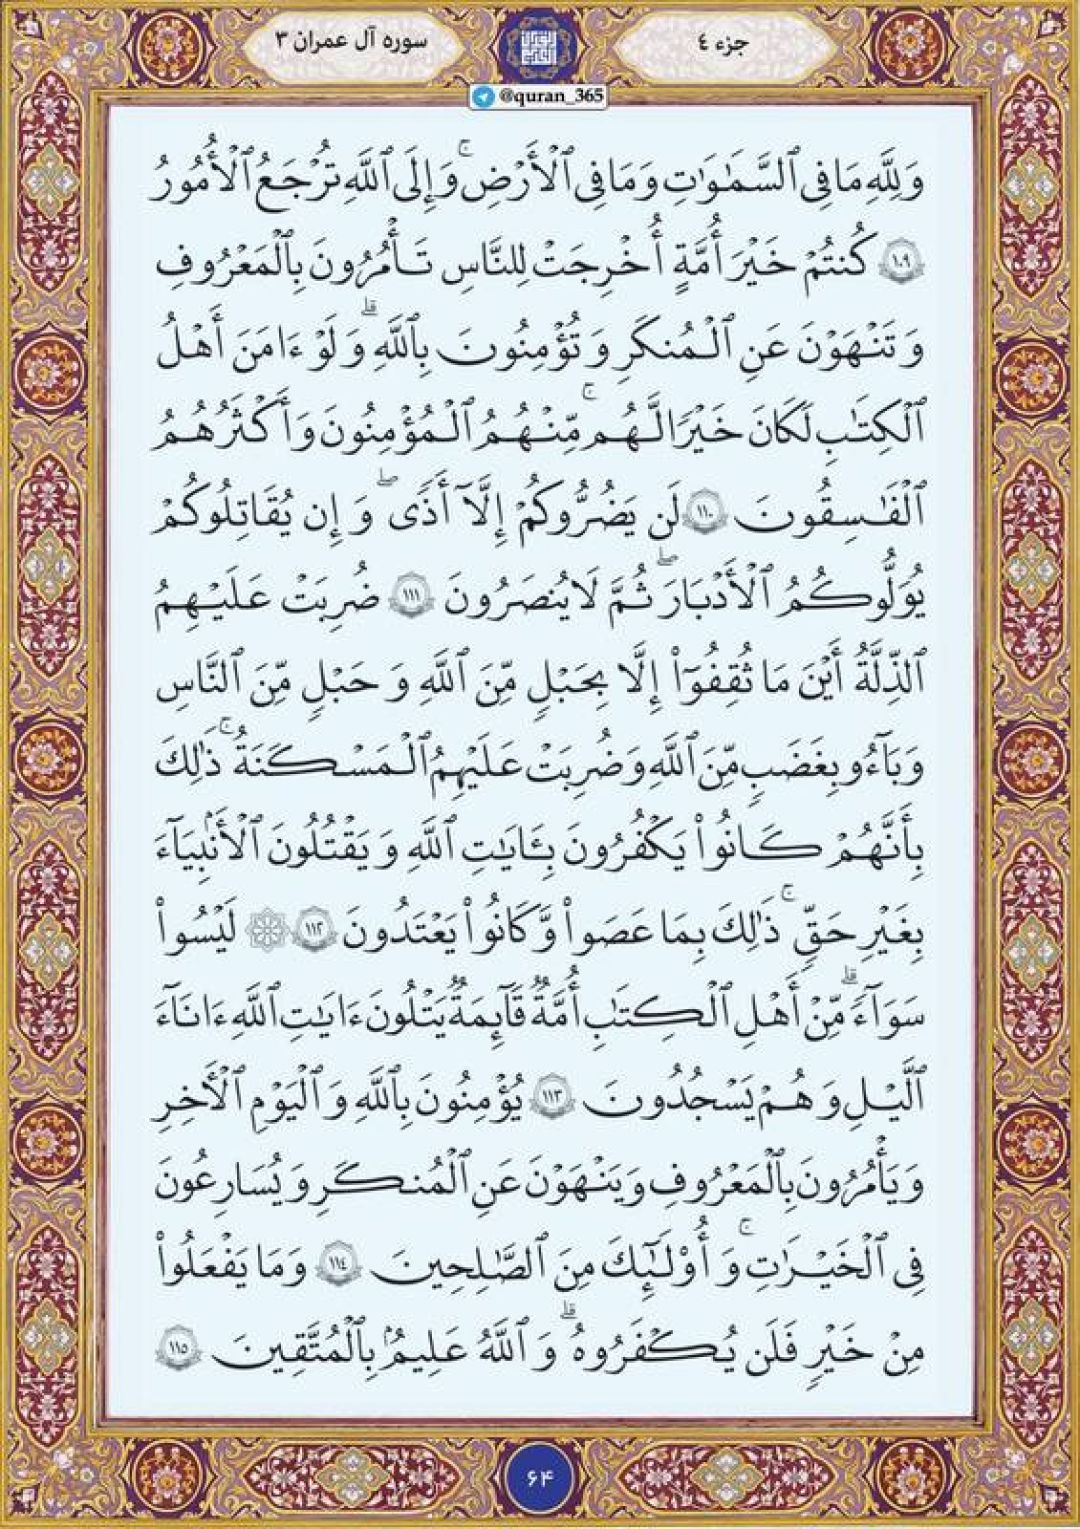 سوره آل عمران ٣
جزء ٤
@quran_365
وَلِلَّهِ مَا فِي ٱلسَّمَٰوَٰتِ وَمَا فِي ٱلْأَرْضِ ۚ وَإِلَى ٱللَّهِ تُرْجَعُ ٱلْأُمُورُ
١٠٩ كُنتُمْ خَيْرَ أُمَّةٍ أُخْرِجَتْ لِلنَّاسِ تَأْمُرُونَ بِٱلْمَعْرُوفِ
وَتَنْهَوْنَ عَنِ ٱلْمُنكَرِ وَتُؤْمِنُونَ بِٱللَّهِ ۗ وَلَوْ ءَامَنَ أَهْلُ
ٱلْكِتَٰبِ لَكَانَ خَيْرًا لَّهُم ۚ مِّنْهُمُ ٱلْمُؤْمِنُونَ وَأَكْثَرُهُمُ
ٱلْفَٰسِقُونَ ١١٠ لَن يَضُرُّوكُمْ إِلَّآ أَذًى ۖ وَإِن يُقَاتِلُوكُمْ
يُوَلُّوكُمُ ٱلْأَدْبَارَ ۖ ثُمَّ لَا يُنصَرُونَ ١١١ ضُرِبَتْ عَلَيْهِمُ
ٱلذِّلَّةُ أَيْنَ مَا ثُقِفُوٓا۟ إِلَّا بِحَبْلٍ مِّنَ ٱللَّهِ وَحَبْلٍ مِّنَ ٱلنَّاسِ
وَبَآءُو بِغَضَبٍ مِّنَ ٱللَّهِ وَضُرِبَتْ عَلَيْهِمُ ٱلْمَسْكَنَةُ ۚ ذَٰلِكَ
بِأَنَّهُمْ كَانُوا۟ يَكْفُرُونَ بِـَٔايَٰتِ ٱللَّهِ وَيَقْتُلُونَ ٱلْأَنۢبِيَآءَ
بِغَيْرِ حَقٍّ ۚ ذَٰلِكَ بِمَا عَصَوا۟ وَّكَانُوا۟ يَعْتَدُونَ ١١٢ ۞ لَيْسُوا۟
سَوَآءً ۗ مِّنْ أَهْلِ ٱلْكِتَٰبِ أُمَّةٌ قَآئِمَةٌ يَتْلُونَ ءَايَٰتِ ٱللَّهِ ءَانَآءَ
ٱلَّيْلِ وَهُمْ يَسْجُدُونَ ١١٣ يُؤْمِنُونَ بِٱللَّهِ وَٱلْيَوْمِ ٱلْأَخِرِ
وَيَأْمُرُونَ بِٱلْمَعْرُوفِ وَيَنْهَوْنَ عَنِ ٱلْمُنكَرِ وَيُسَٰرِعُونَ
فِي ٱلْخَيْرَٰتِ ۚ وَأُو۟لَٰٓئِكَ مِنَ ٱلصَّٰلِحِينَ ١١٤ وَمَا يَفْعَلُوا۟
مِنْ خَيْرٍ فَلَن يُكْفَرُوهُ ۗ وَٱللَّهُ عَلِيمٌۢ بِٱلْمُتَّقِينَ ١١٥
۶۴